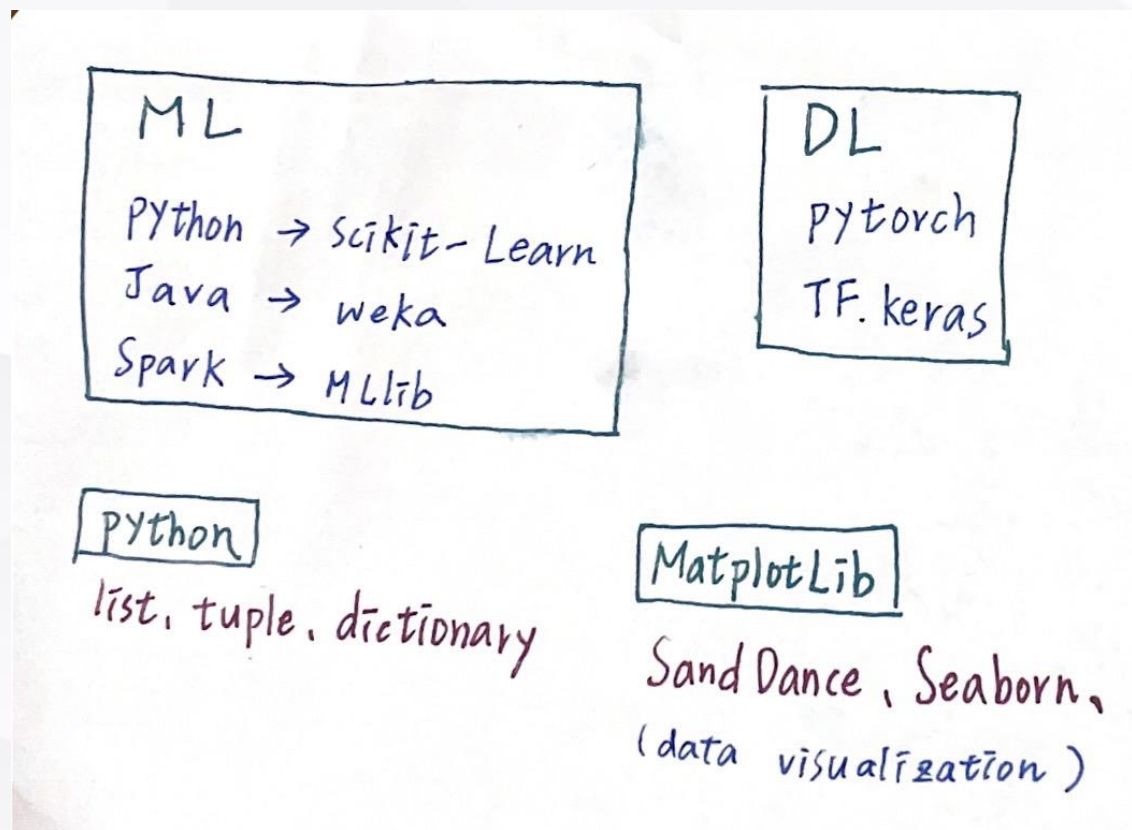 ML
Python → Scikit-Learn
Java → weka
Spark → MLlib
DL
pytorch
TF. keras
python
list、tuple、dictionary
MatplotLib
SandDance、Seaborn、
(data visualization)